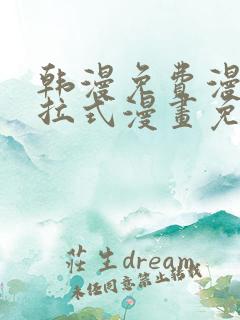 韩漫免費漫
拉式漫畫免
莊生dream
未经同意禁止转载